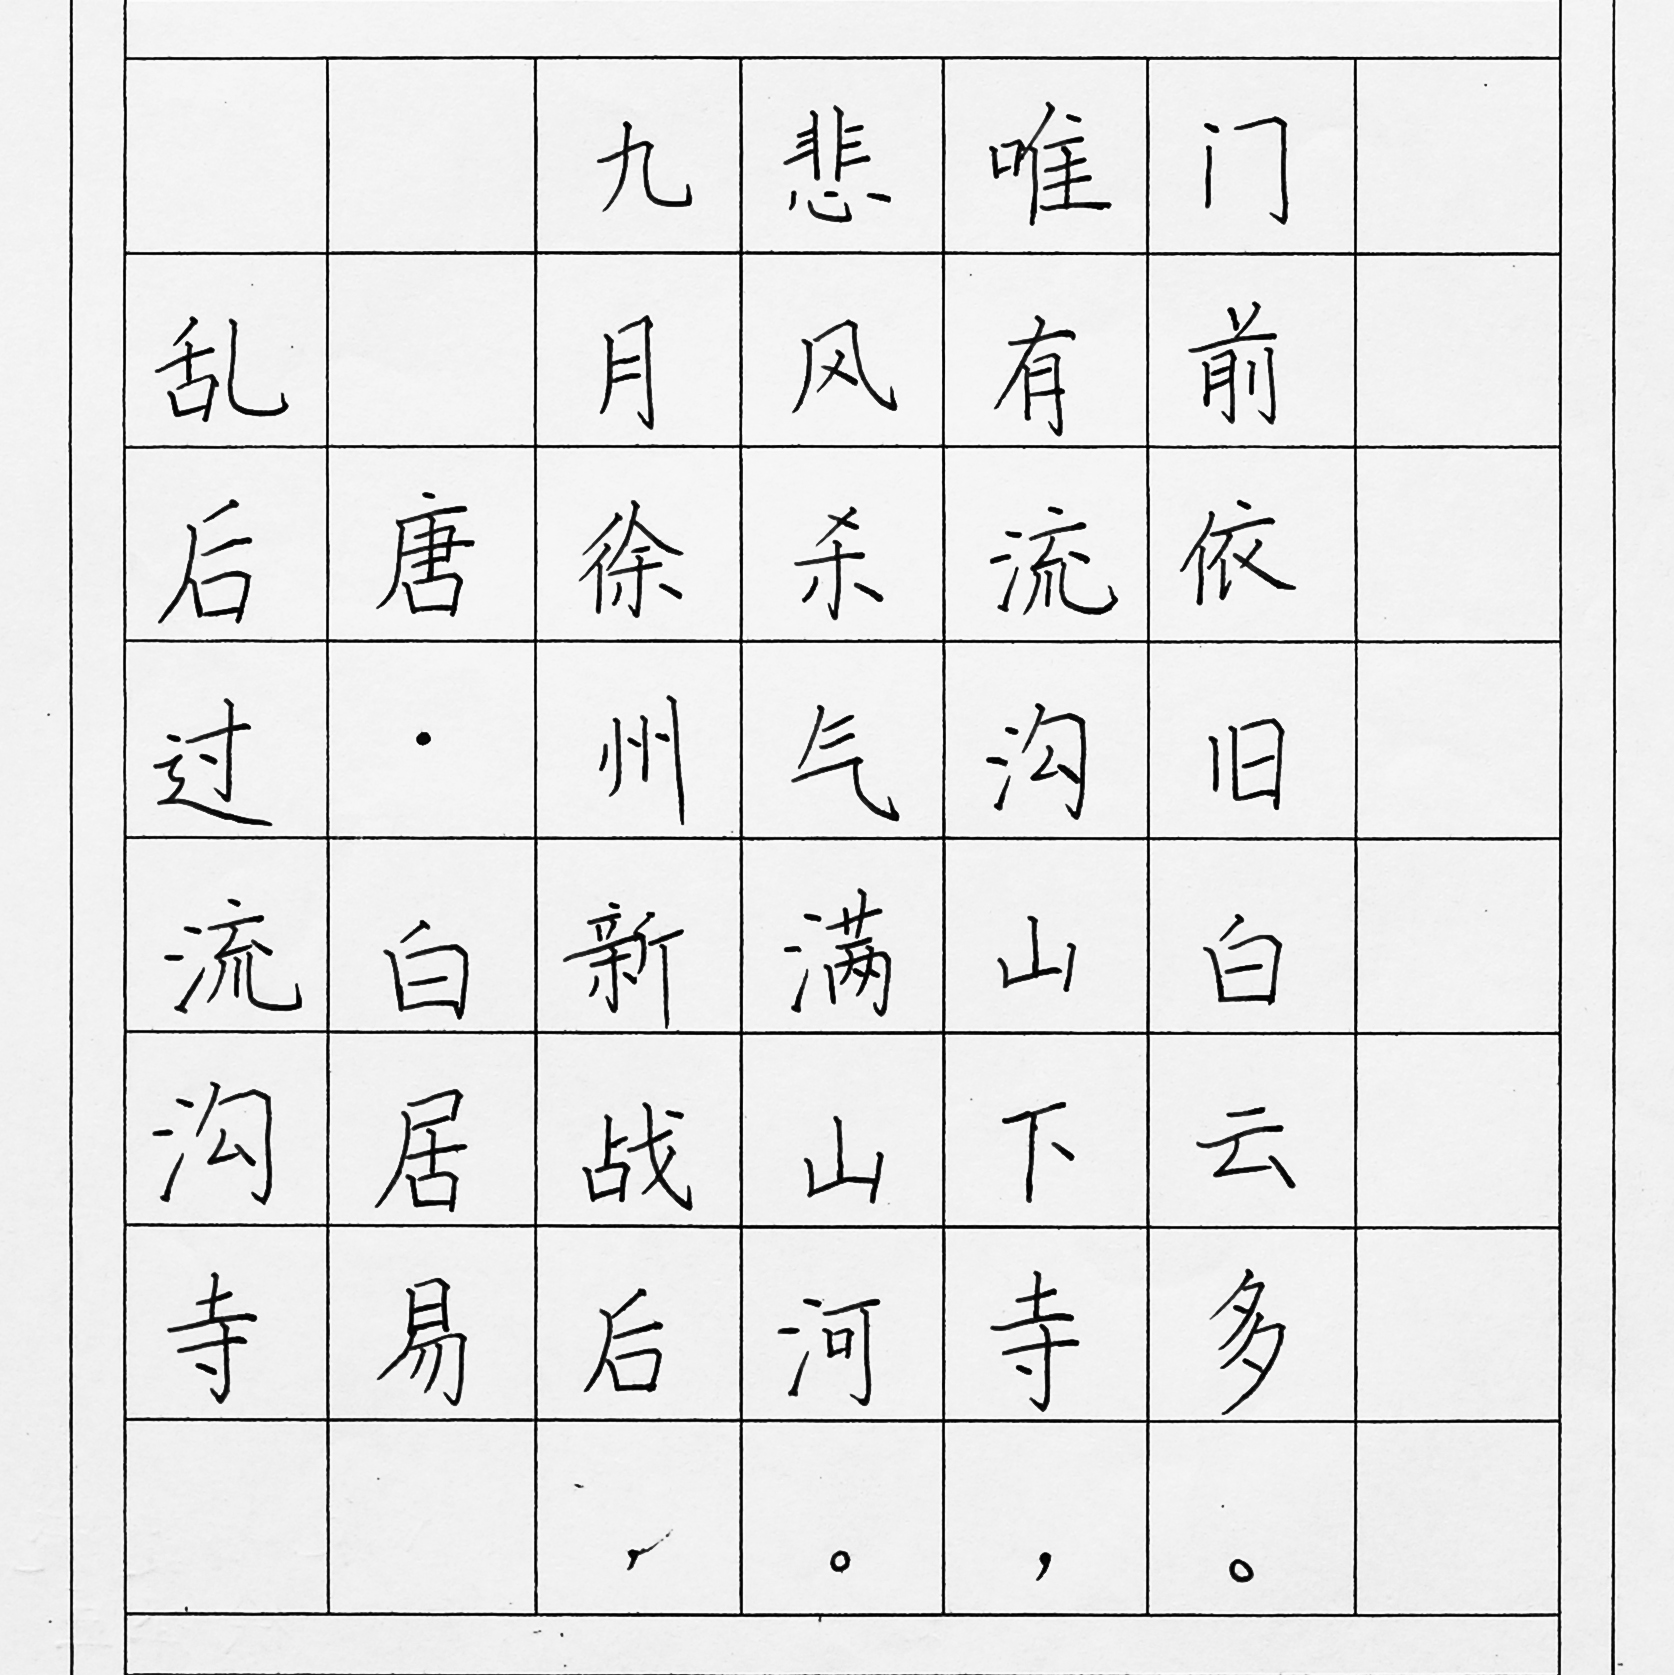 乱后过流沟寺
唐·白居易
九月徐州新战后，
悲风杀气满山河。
唯有流沟山下寺，
门前依旧白云多。